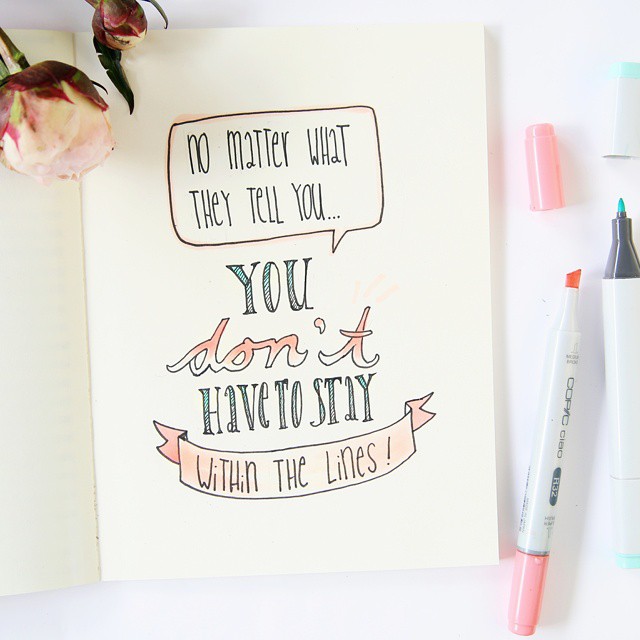 No matter what
they tell you...
YOU
don't
HAVE TO STAY
within the lines!
COPIC CIAO